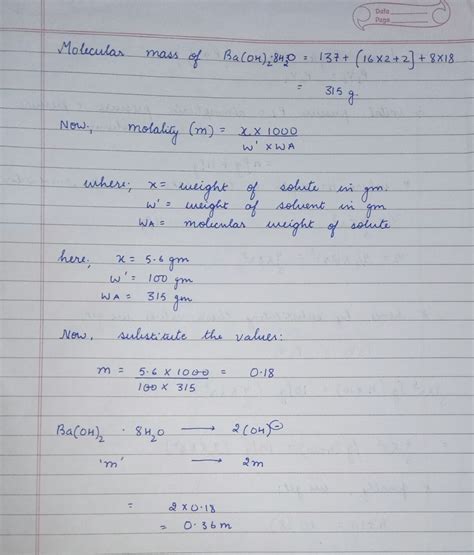 Date
Page
Molecular mass of Ba(OH)₂·8H₂O = 137 + [16×2+2] + 8×18
= 315 g.
Now, molality (m) = x × 1000
W' × WA
where; x = weight of solute in gm.
W' = weight of solvent in gm
WA = molecular weight of solute
here; x = 5.6 gm
W' = 100 gm
WA = 315 gm
Now, substitute the values:
m = 5.6 × 1000 = 0.18
100 × 315
Ba(OH)₂ · 8H₂O ⟶ 2(OH)⊖
'm' ⟶ 2m
= 2 × 0.18
= 0.36 m